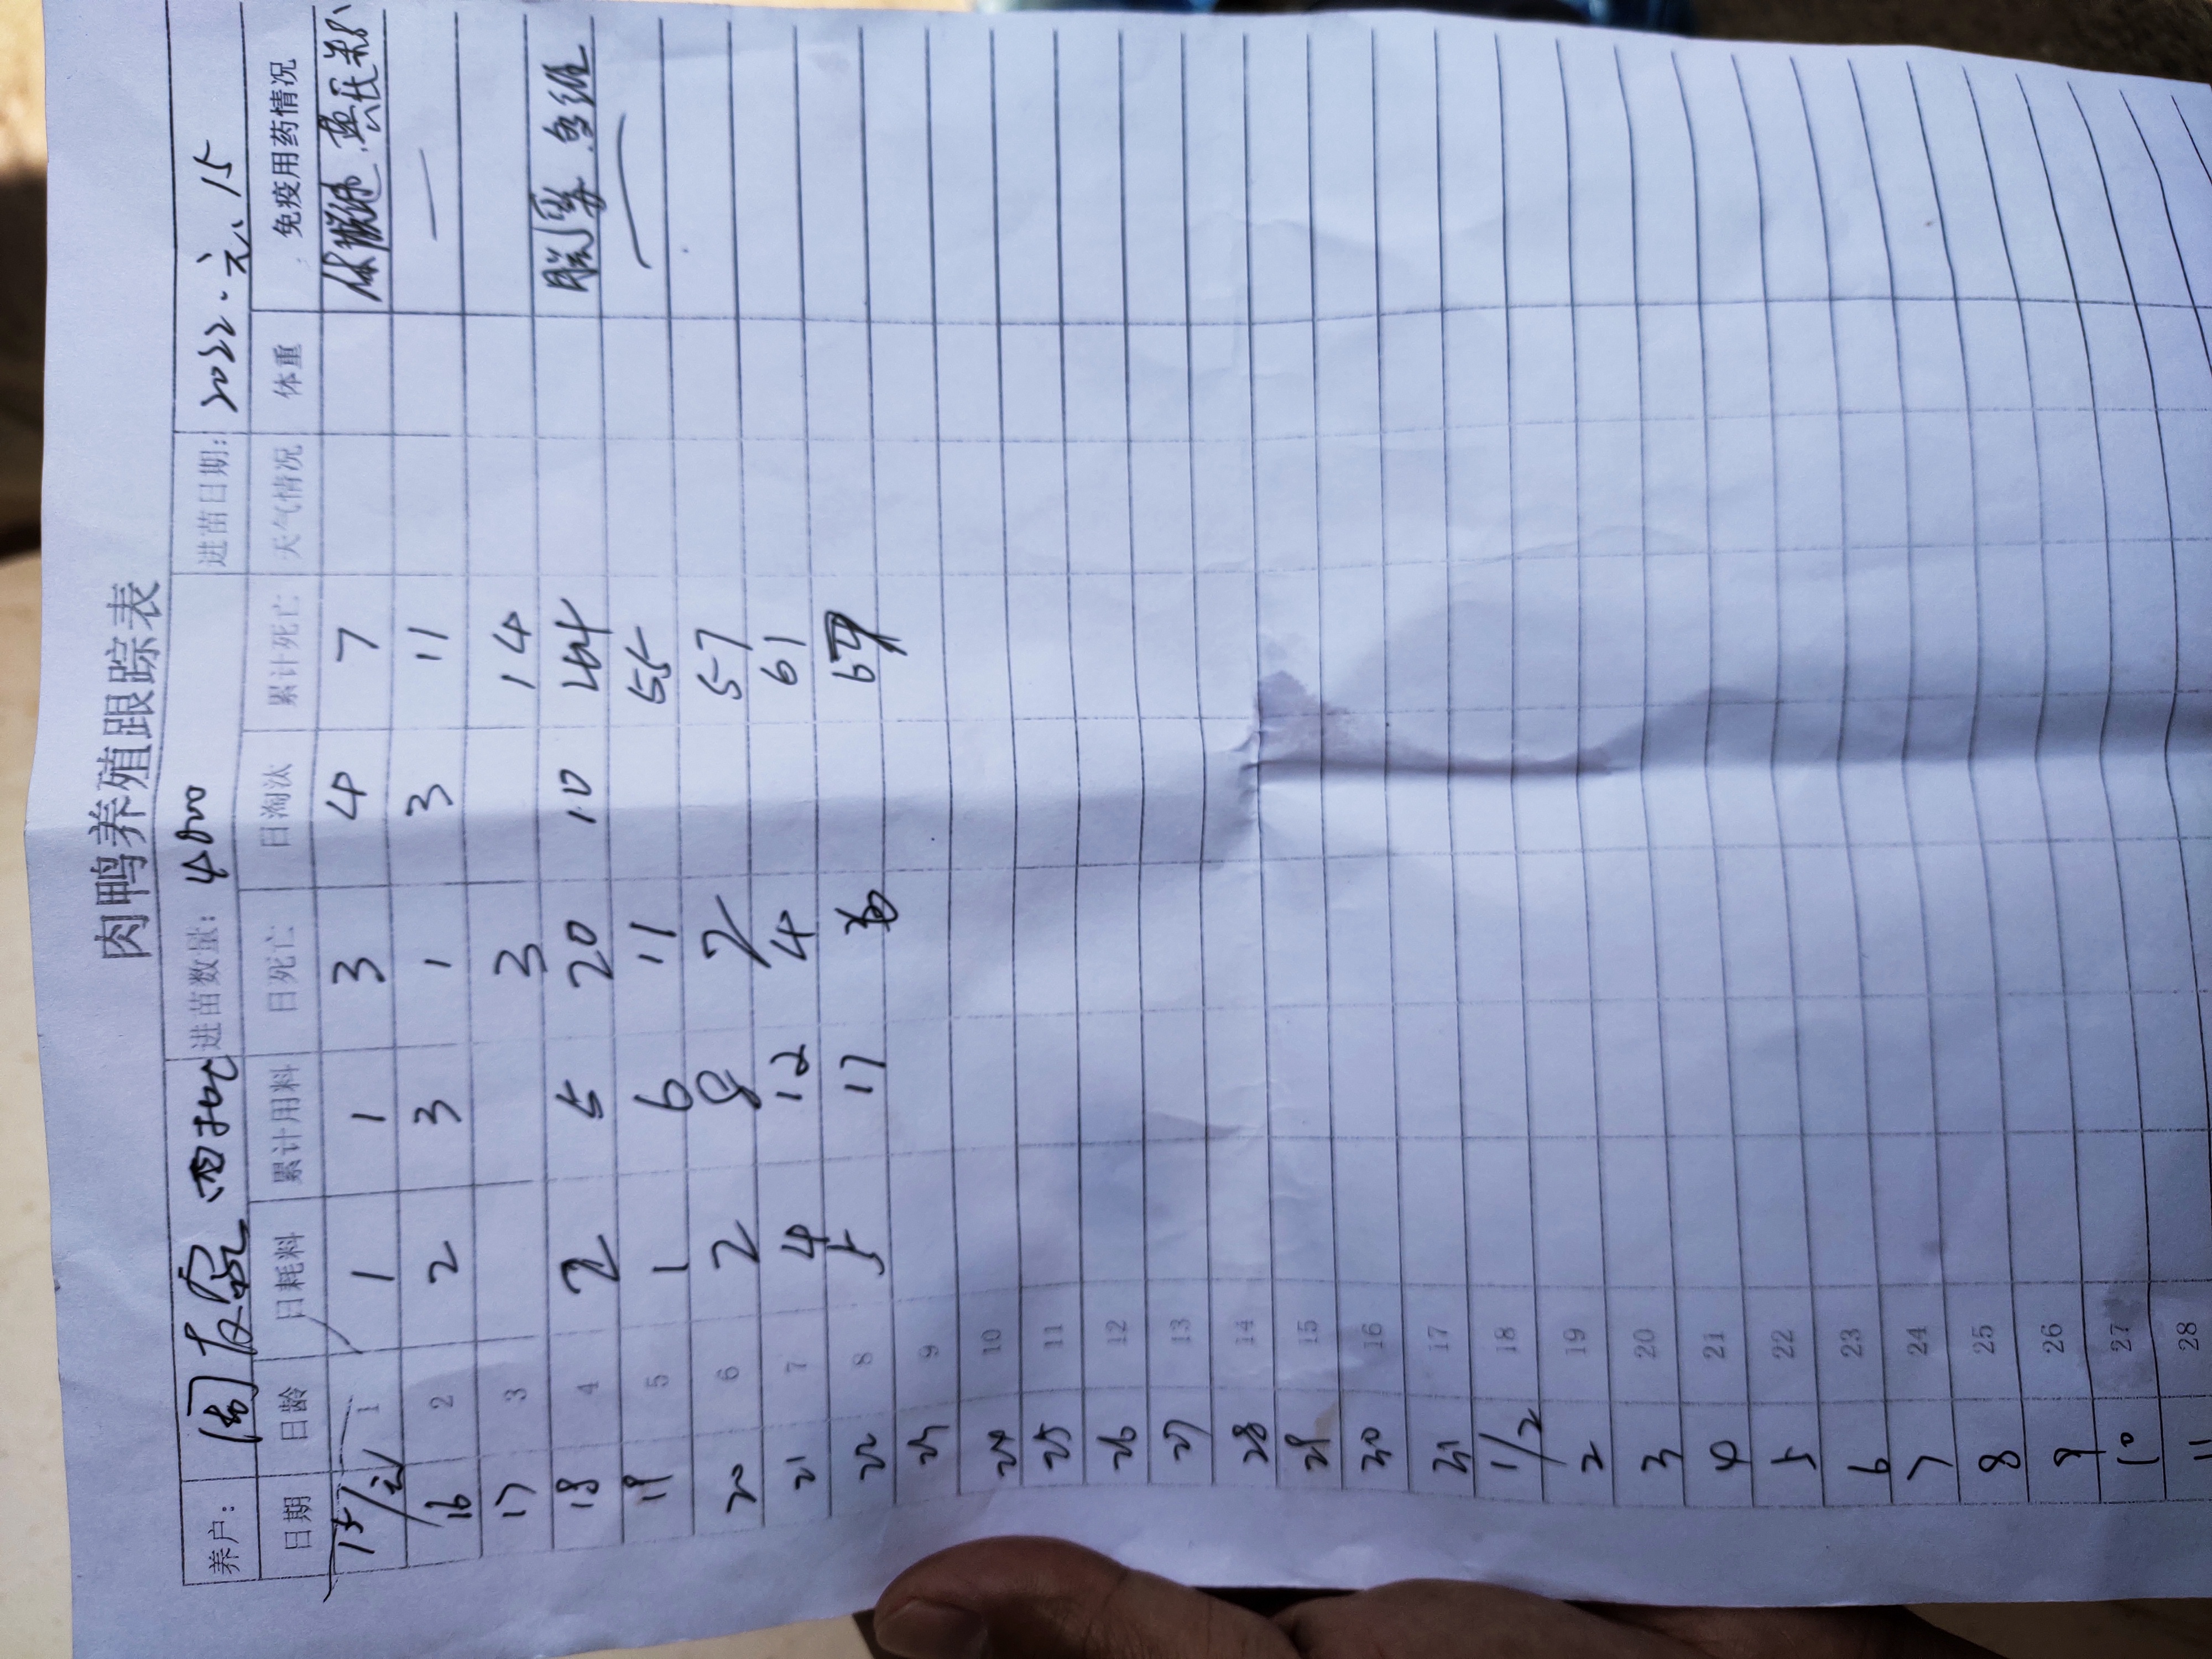 肉鸭养殖跟踪表
养户： 周 进苗数量： 4800 进苗日期： 2022.元.15
日期 日龄 日耗料 累计用料 日死亡 日淘汰 累计死亡 天气情况 体重 免疫用药情况
15/元 1 1 1 3 4 7
16 2 2 3 1 3 11 —
17 3 3 14
18 4 2 5 20 10 44
19 5 1 6 11 55
20 6 2 8 2 57
21 7 4 12 4 61
22 8 5 17
23 9
24 10
25 11
26 12
27 13
28 14
29 15
30 16
31 17
1/2 18
2 19
3 20
4 21
5 22
6 23
7 24
8 25
9 26
10 27
11 28